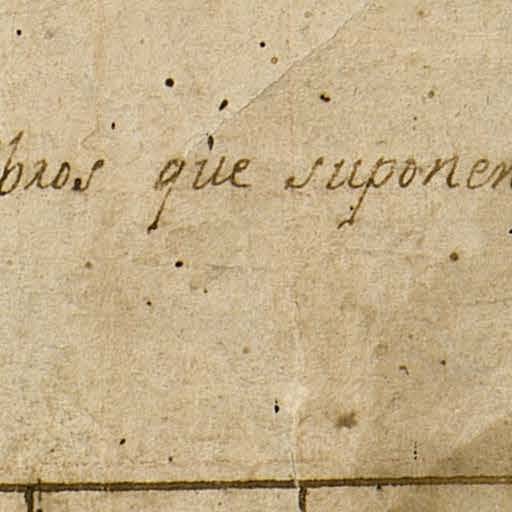 bros que suponen